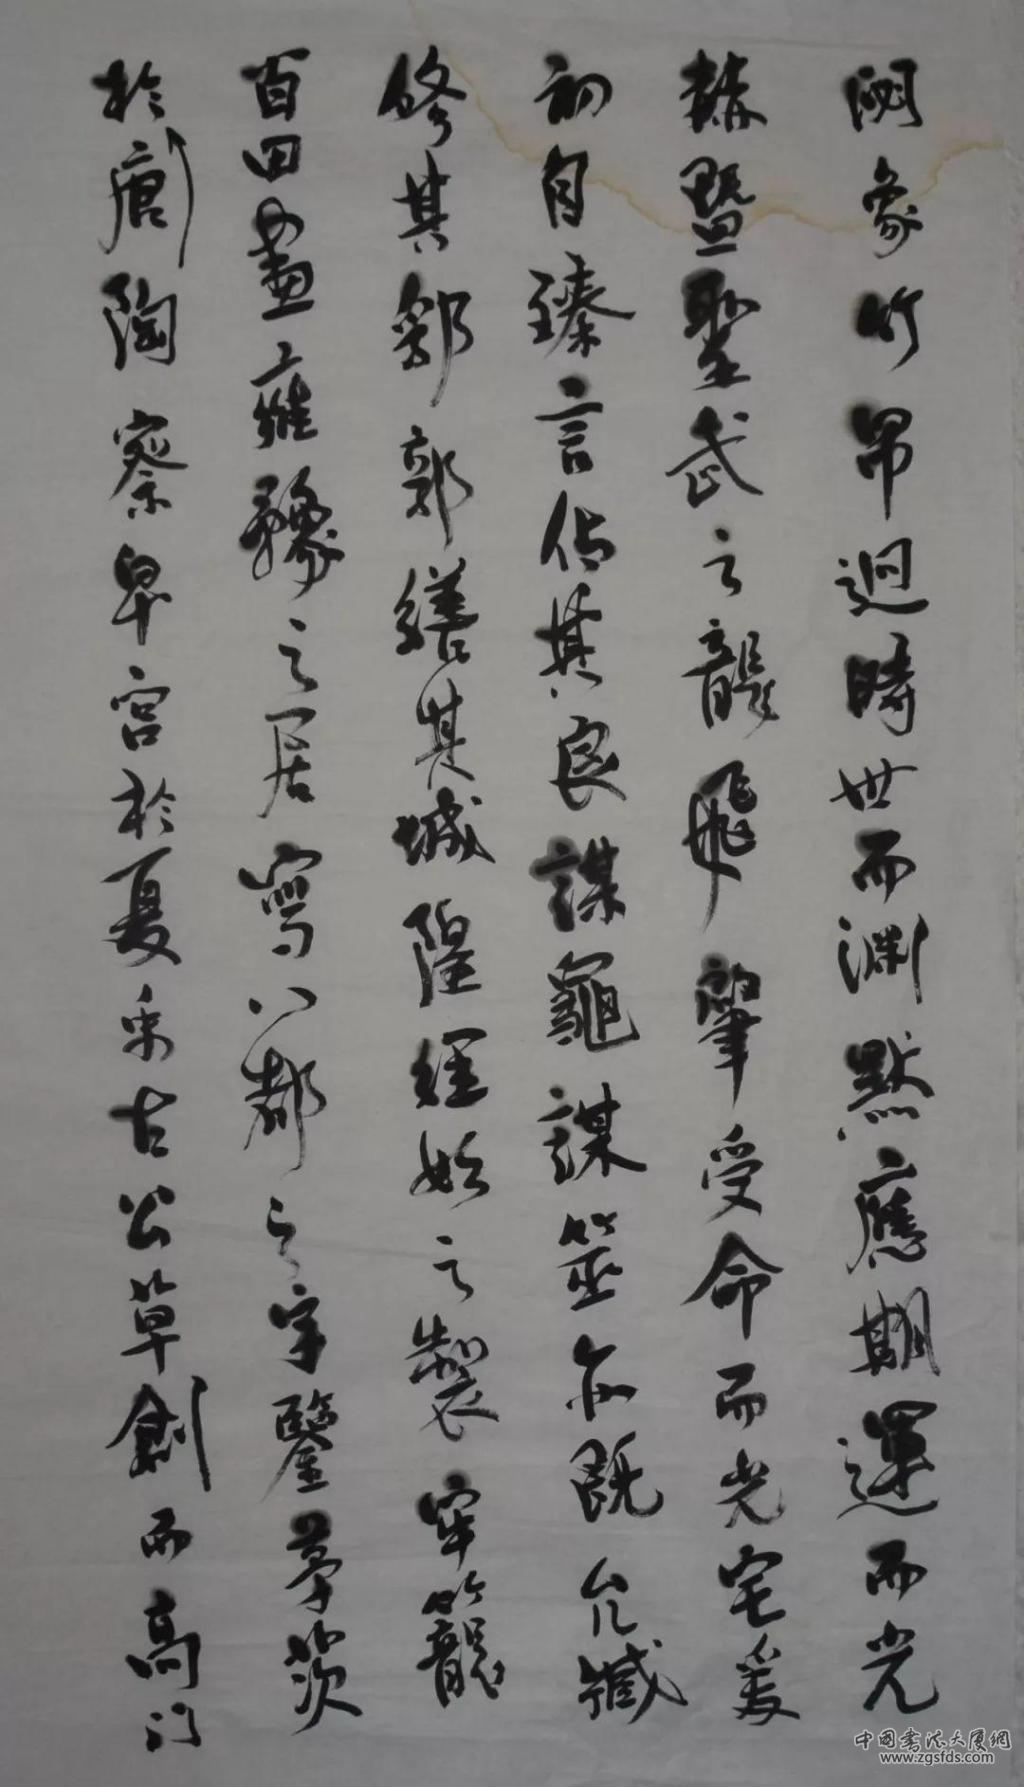 閟象竹帛迥時世而淵默應期運而光
赫暨聖武之龍飛肇受命而光宅爰
初自臻言佔其良謀龜謀筮亦既允臧
修其郛郭繕其城隍經始之製牢籠
百田畫雍豫之居寫八都之宇鑒茅茨
於唐陶察卑宮於夏禹古公草創而高门
中国书法大厦網
www.zgsfds.com